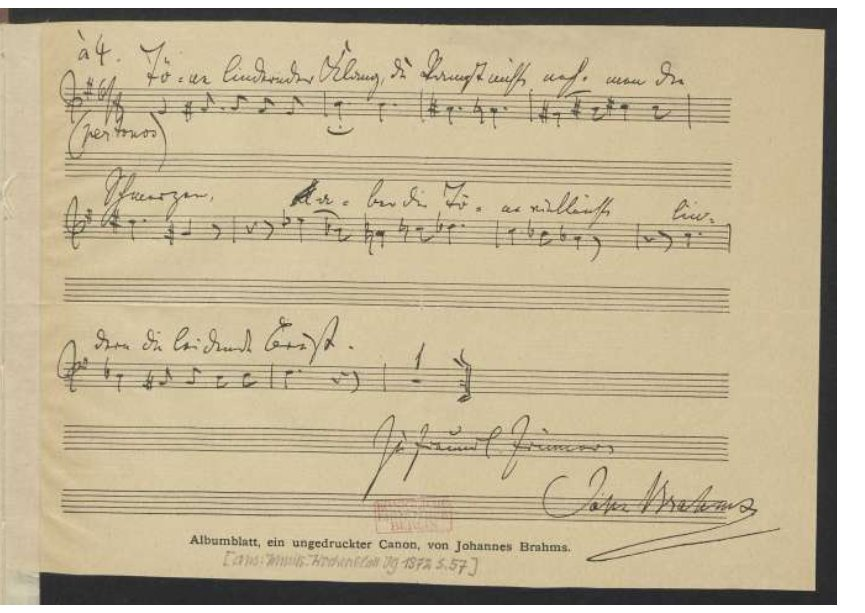 à 4.
Tö-ne lindernder Klang, du kannst nicht neh-men die
(per tonos)
Schmerzen, a-ber die Tö-ne vielleicht lin-
dern die leidende Brust.
1
Zu freundl.
Joh. Brahms
BERLIN
Albumblatt, ein ungedruckter Canon, von Johannes Brahms.
[aus: Musik. Wochenblatt Jg 1872 S. 57]